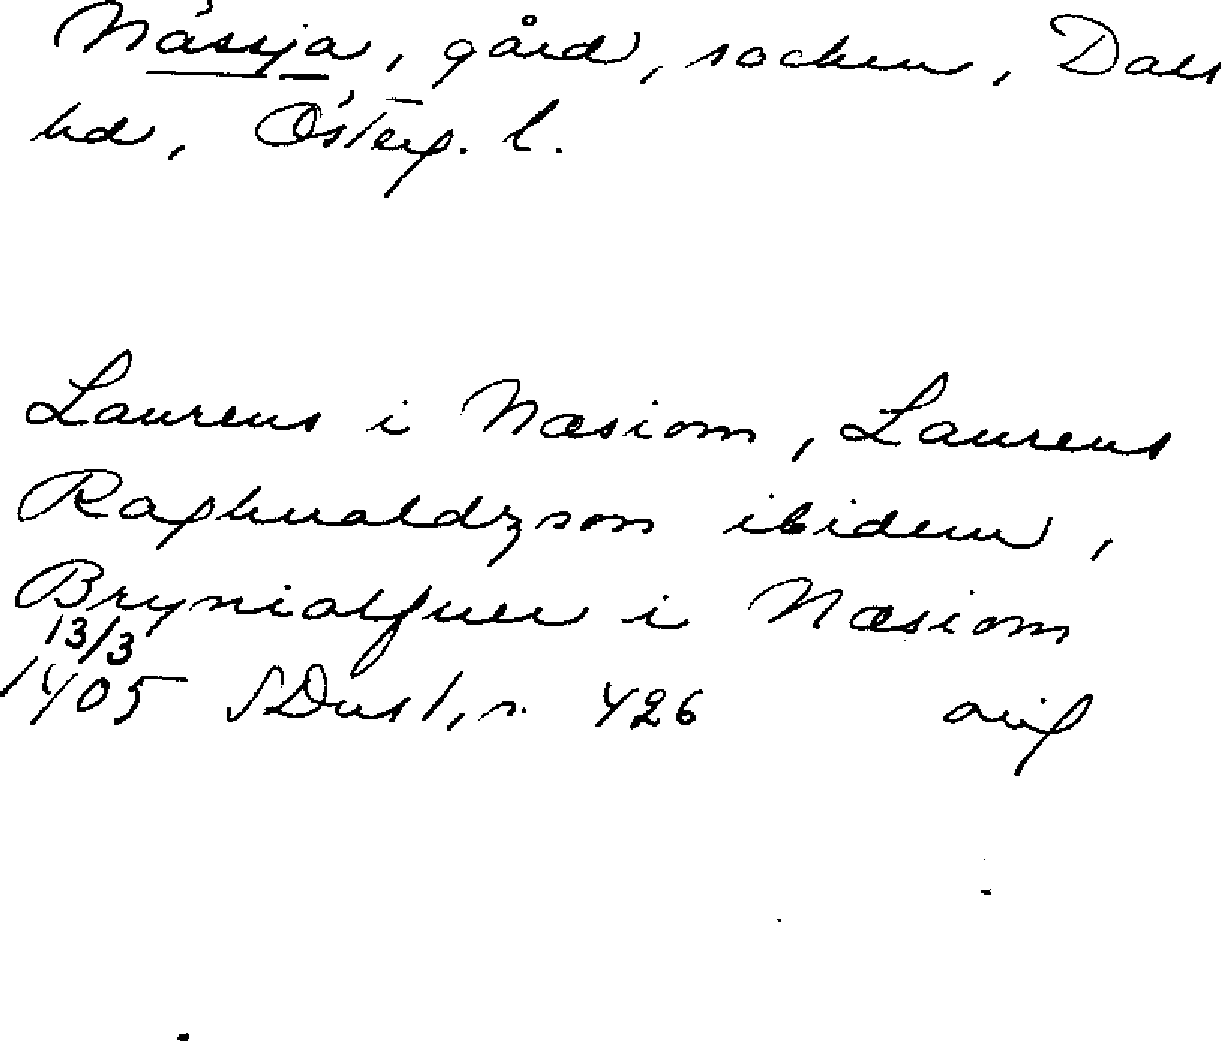 Nässja, gård, socken, Dals
hd, Österg. l.
Laurens i Næsiom, Laurens
Raghualdzson ibidem,
Brynialfuer i Næsiom
13/3
1405 SDns 1, s. 426 avig